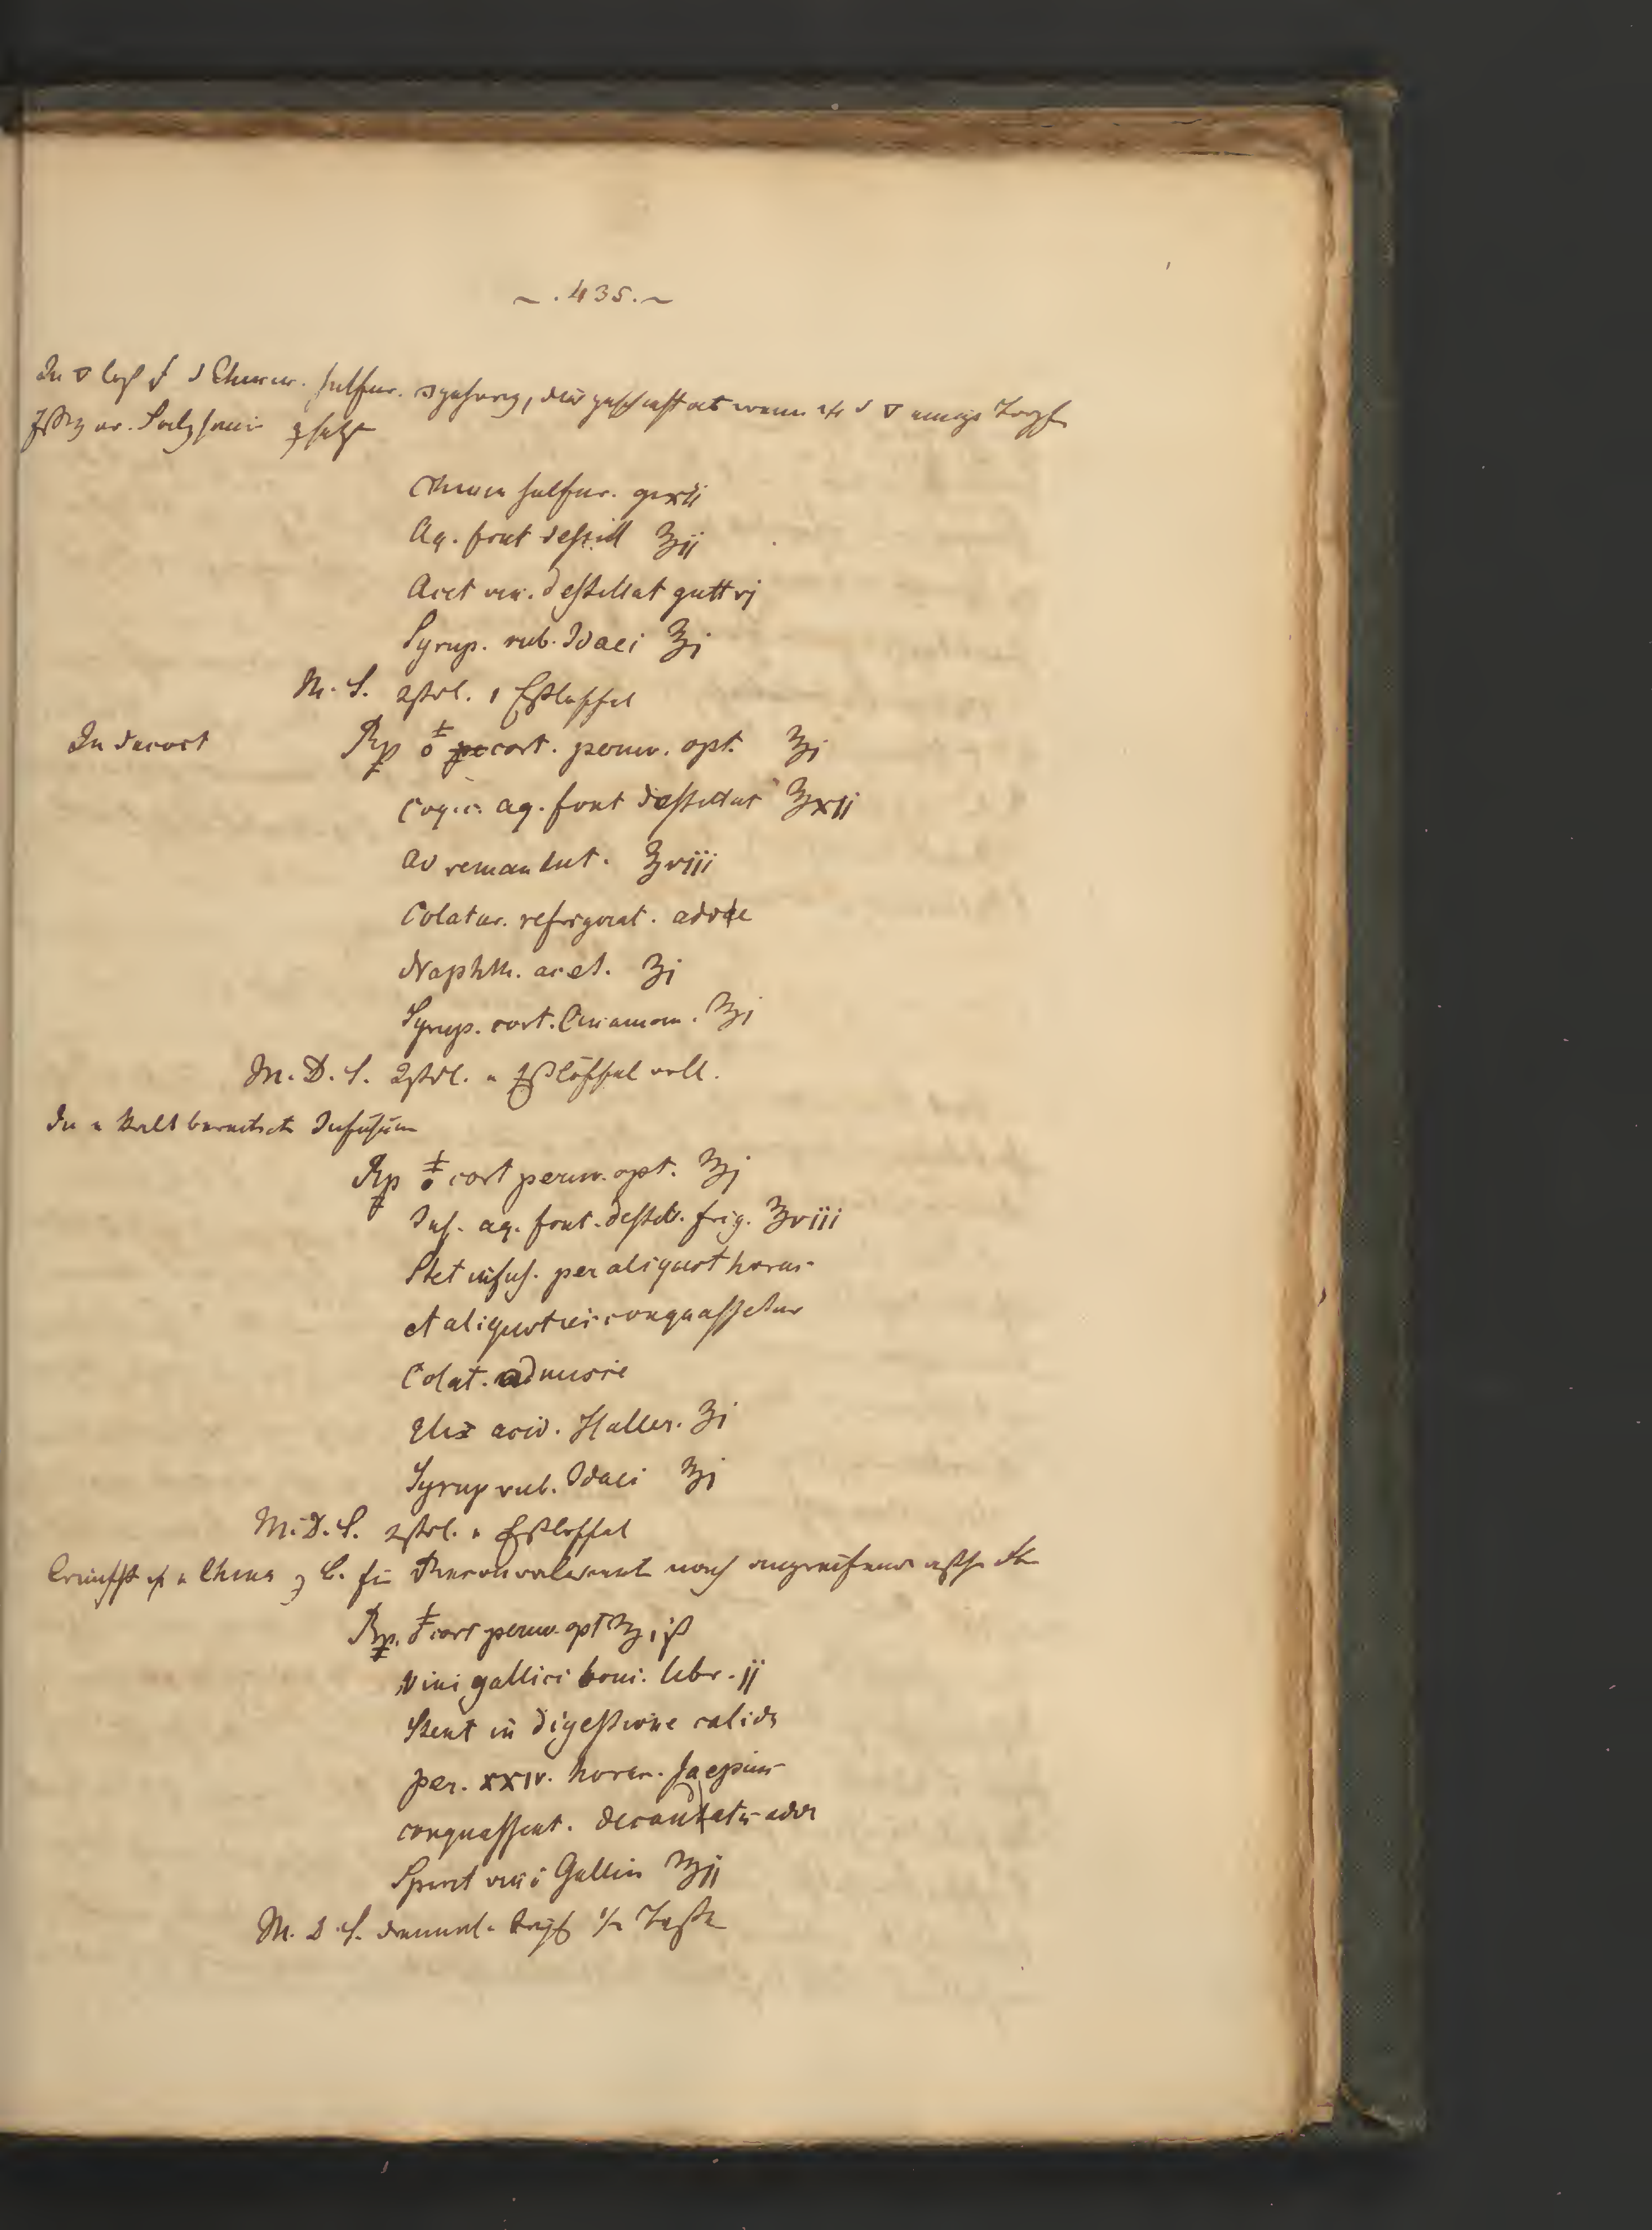 ~ . 435. ~
In ▽ löst sich d Chinin. sulfur. , dies geschieht aber wenn d ▽ einige Tropf
Essig or. Salzsäure zusetzt
Chinin sulfur. gr xii
Aq. font destill ℥ij
Acet vin. destillat gutt vj
Syrup. rub. Idaei ℥j
M. S. 2stdl. 1 Eßlöffel
In Decoct Rp cort. peruv. opt. ℥j
Coq. c. aq. font destillat ℥xij
ad remanent. ℥viij
Colatur. refrigerat. adde
Naphth. acet. ʒj
Syrup. cort. Cinamom. ℥j
M. D. S. 2stdl. Eßlöffel voll.
In kalt bereitet Infusum
Rp cort peruv. opt. ℥j
Inf. aq. font. destill. frig. ℥viii
Stet infus. per aliquot horas
et aliquoties conquassetur
Colat. admisce
Elix acid. Haller. ʒj
Syrup rub. Idaei ℥j
M. D. S. 2stdl. Eßlöffel
China z B. für Reconvalescent nach angreifend
Rp. cort peruv. opt ℥iß
Vini gallici boni. libr. jj
Stent in digestione calida
per. xxiv. horas. saepius
conquassent. decantatis adde
Spirit vini Gallici ℥ij
M. D. S. 1/2 Tasse